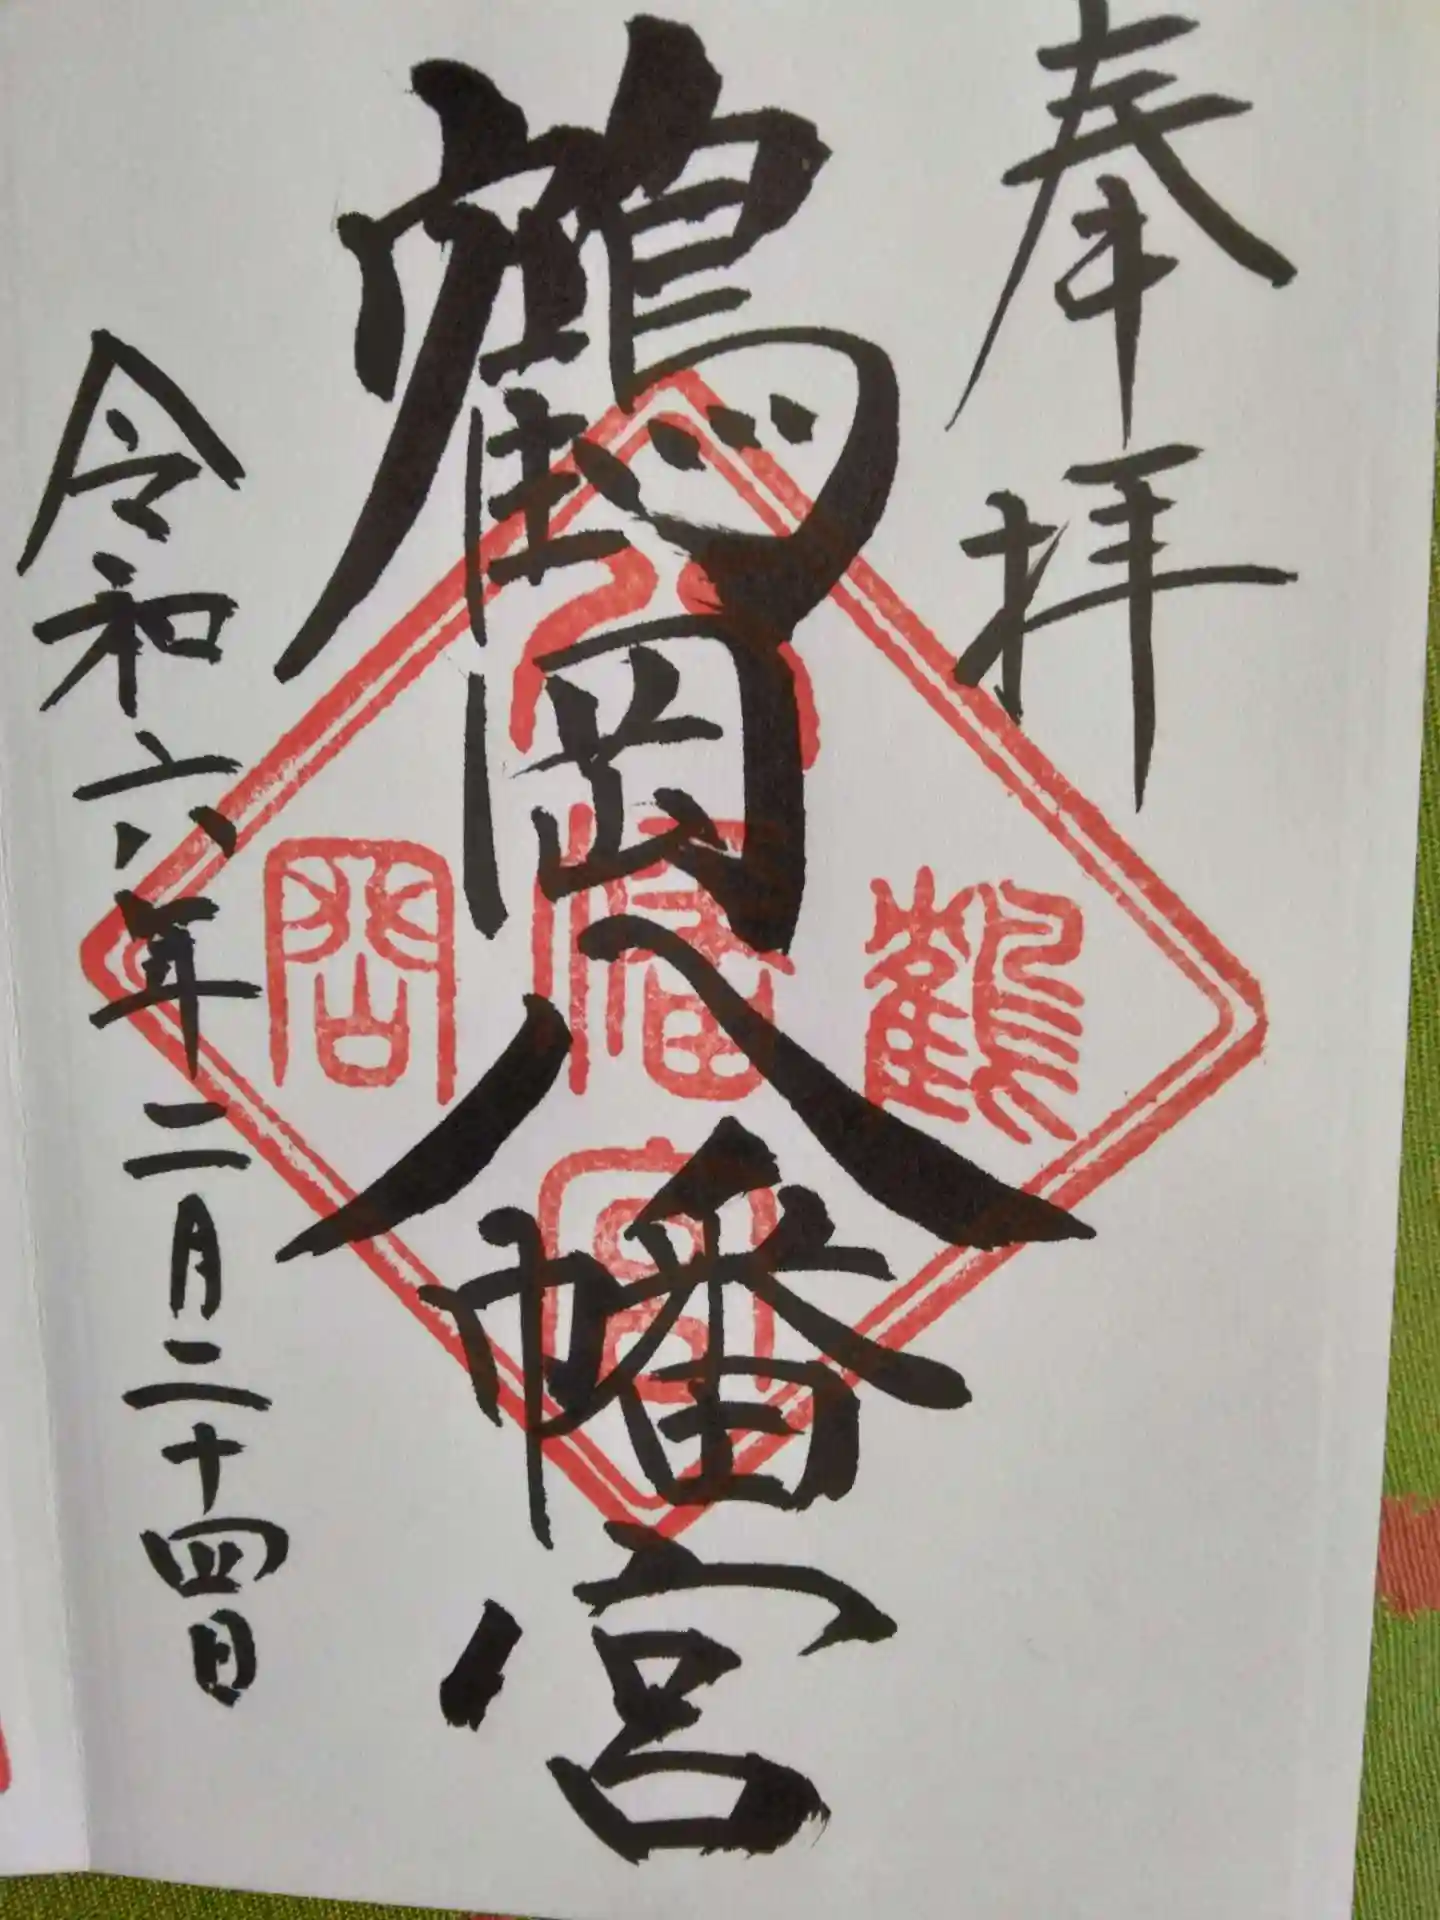 奉拝
鶴岡八幡宮
令和六年二月二十四日
八
鶴幡岡
宮